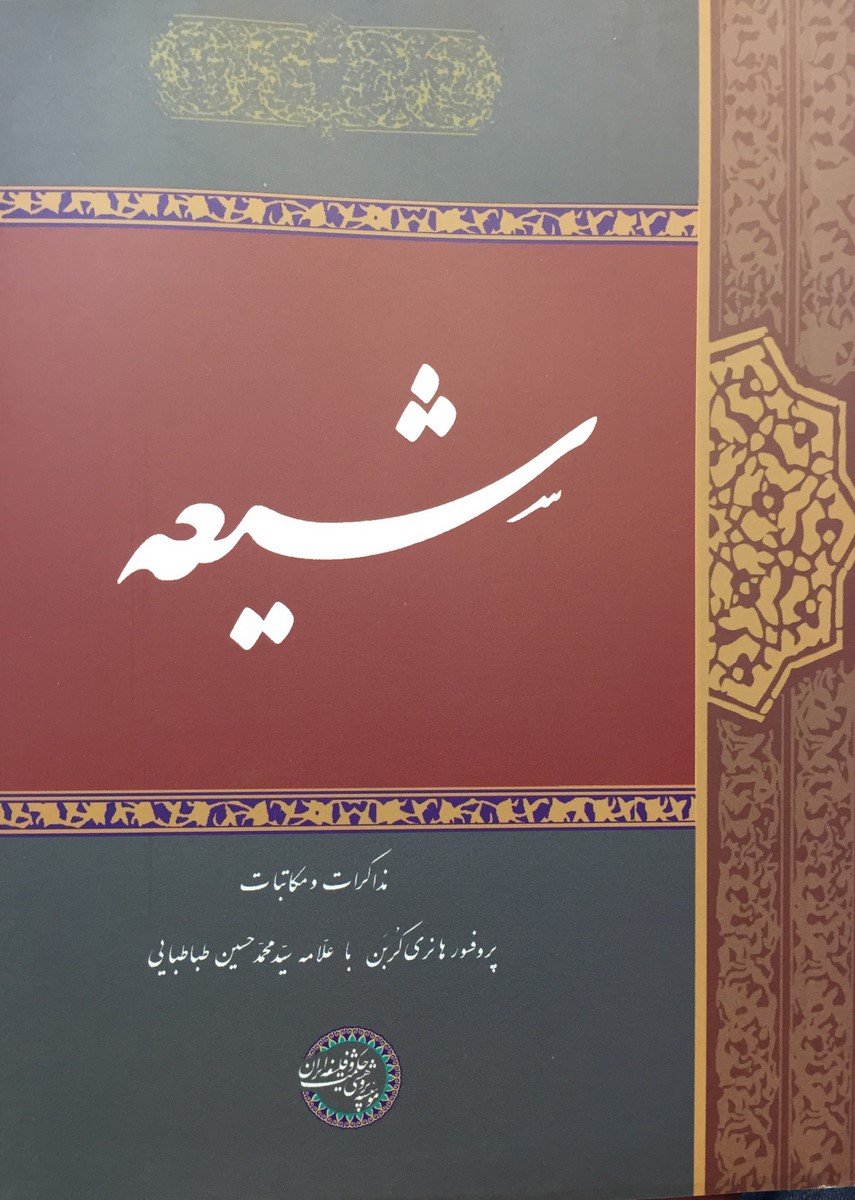 شیعه
مذاکرات و مکاتبات
پروفسور هانری کُربَن با علّامه سیّد محمّد حسین طباطبایی
مؤسسه پژوهشی حکمت و فلسفه ایران